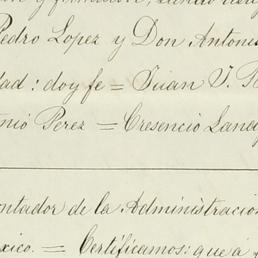 y firmaron, siendo
Pedro Lopez y Don Antonio
dad: doy fe = Juan J. R
nio Perez = Cresencio Lande
ontador de la Administracion
xico. = Certificamos: que á